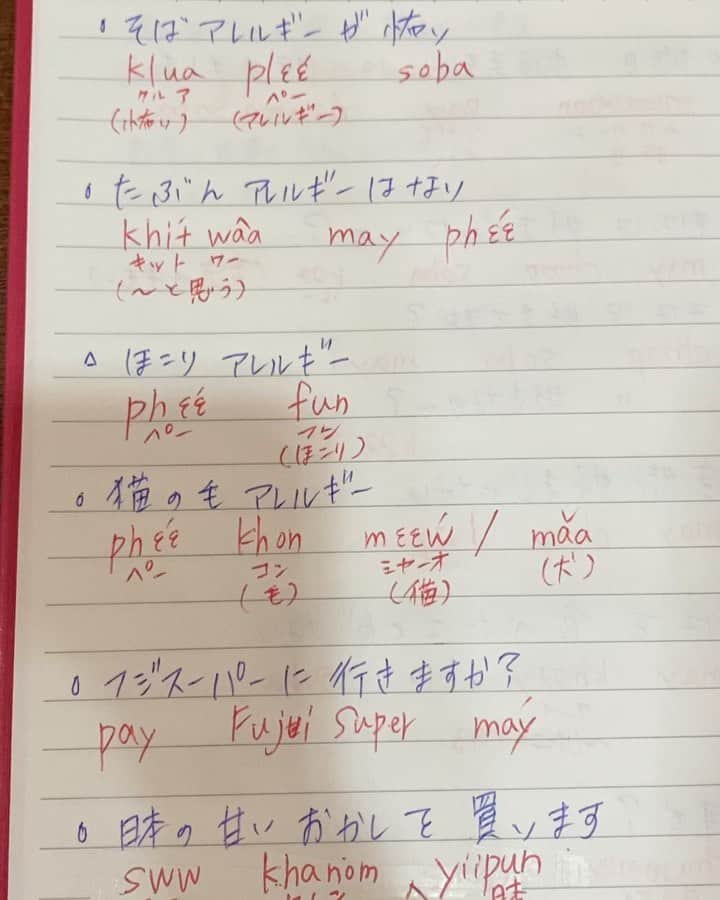 そばアレルギーが怖い
klua plɛɛ́ soba
クルア ペー
(怖い) (アレルギー)
たぶんアレルギーはない
khít wâa may phɛɛ́
キット ワー
(〜と思う)
ほこりアレルギー
phɛɛ́ fun
ペー フン
(ほこり)
猫の毛アレルギー
phɛɛ́ khon mɛɛẃ / mǎa
ペー コン ミャーオ (犬)
(毛) (猫)
フジスーパーに行きますか?
pay Fuji Super máy
日本の甘いおかしを買います
sww khanom yiipun